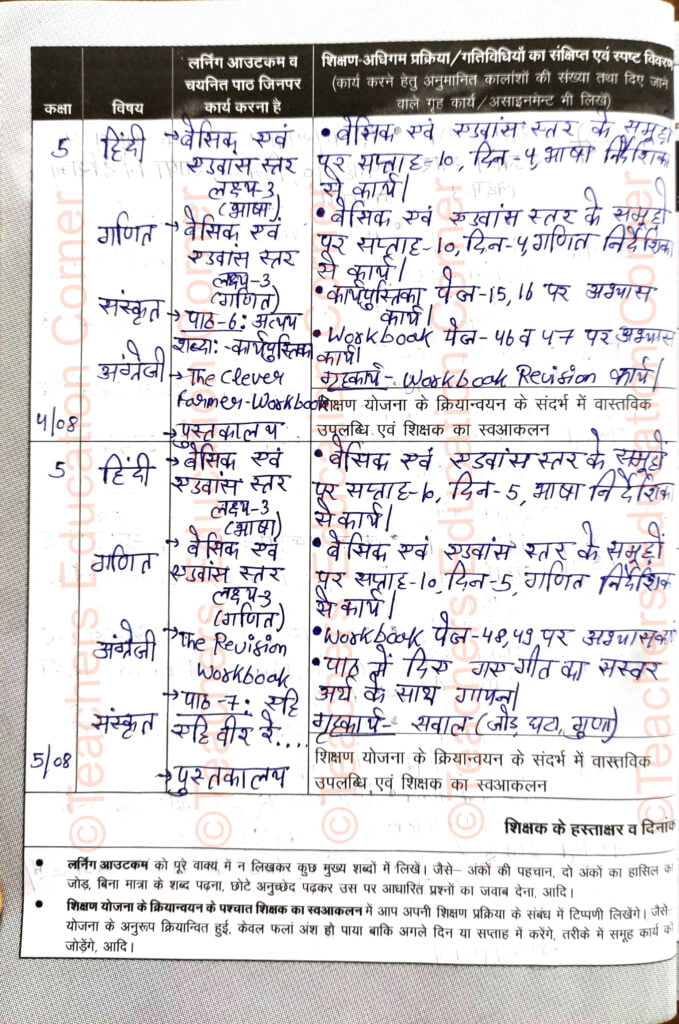 लर्निंग आउटकम व
चयनित पाठ जिनपर
कार्य करना है
शिक्षण-अधिगम प्रक्रिया/गतिविधियों का संक्षिप्त एवं स्पष्ट विवरण
(कार्य करने हेतु अनुमानित कालांशों की संख्या तथा दिए जाने
वाले गृह कार्य/असाइनमेन्ट भी लिखें)
कक्षा
विषय
5
हिंदी
→ बेसिक एवं
एडवांस स्तर
लक्ष्य-3
(भाषा)
• बेसिक एवं एडवांस स्तर के समूहों
पर सप्ताह-10, दिन-4, भाषा निर्देशिका
से कार्य।
गणित
→ बेसिक एवं
एडवांस स्तर
लक्ष्य-3
(गणित)
• बेसिक एवं एडवांस स्तर के समूहों
पर सप्ताह-10, दिन-4, गणित निर्देशिका
से कार्य।
संस्कृत
→ पाठ-6: अव्यय
शब्दाः-कार्यपुस्तिका
• कार्यपुस्तिका पेज-15,16 पर अभ्यास
कार्य।
अंग्रेजी
→ The Clever
Farmer-Workbook
• Workbook पेज-46 व 47 पर अभ्यास
कार्य।
गृहकार्य- Workbook Revision कार्य।
4/08
→ पुस्तकालय
शिक्षण योजना के क्रियान्वयन के संदर्भ में वास्तविक
उपलब्धि एवं शिक्षक का स्वआकलन
5
हिंदी
→ बेसिक एवं
एडवांस स्तर
लक्ष्य-3
(भाषा)
• बेसिक एवं एडवांस स्तर के समूहों
पर सप्ताह-10, दिन-5, भाषा निर्देशिका
से कार्य।
गणित
→ बेसिक एवं
एडवांस स्तर
लक्ष्य-3
(गणित)
• बेसिक एवं एडवांस स्तर के समूहों
पर सप्ताह-10, दिन-5, गणित निर्देशिका
से कार्य।
अंग्रेजी
→ The Revision
Workbook
• Workbook पेज-48,49 पर अभ्यास
संस्कृत
→ पाठ-7: एहि
एहि वीर रे....
• पाठ में दिए गए गीत का सस्वर
अर्थ के साथ गायन।
गृहकार्य- सवाल (जोड़, घटा, गुणा)
5/08
→ पुस्तकालय
शिक्षण योजना के क्रियान्वयन के संदर्भ में वास्तविक
उपलब्धि एवं शिक्षक का स्वआकलन
शिक्षक के हस्ताक्षर व दिनांक
• लर्निंग आउटकम को पूरे वाक्य में न लिखकर कुछ मुख्य शब्दों में लिखें। जैसे– अंकों की पहचान, दो अंकों का हासिल का
जोड़, बिना मात्रा के शब्द पढ़ना, छोटे अनुच्छेद पढ़कर उस पर आधारित प्रश्नों का जवाब देना, आदि।
• शिक्षण योजना के क्रियान्वयन के पश्चात शिक्षक का स्वआकलन में आप अपनी शिक्षण प्रक्रिया के संबंध में टिप्पणी लिखेंगे। जैसे–
योजना के अनुरूप क्रियान्वित हुई, केवल फलां अंश हो पाया बाकि अगले दिन या सप्ताह में करेंगे, तरीके में समूह कार्य को
जोड़ेंगे, आदि।
©Teachers Education Corner
©Teachers Education Corner
©Teachers Education Corner
©Teachers Education Corner
©Teachers Education Corner